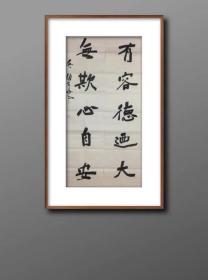 有容德迺大
無欺心自安